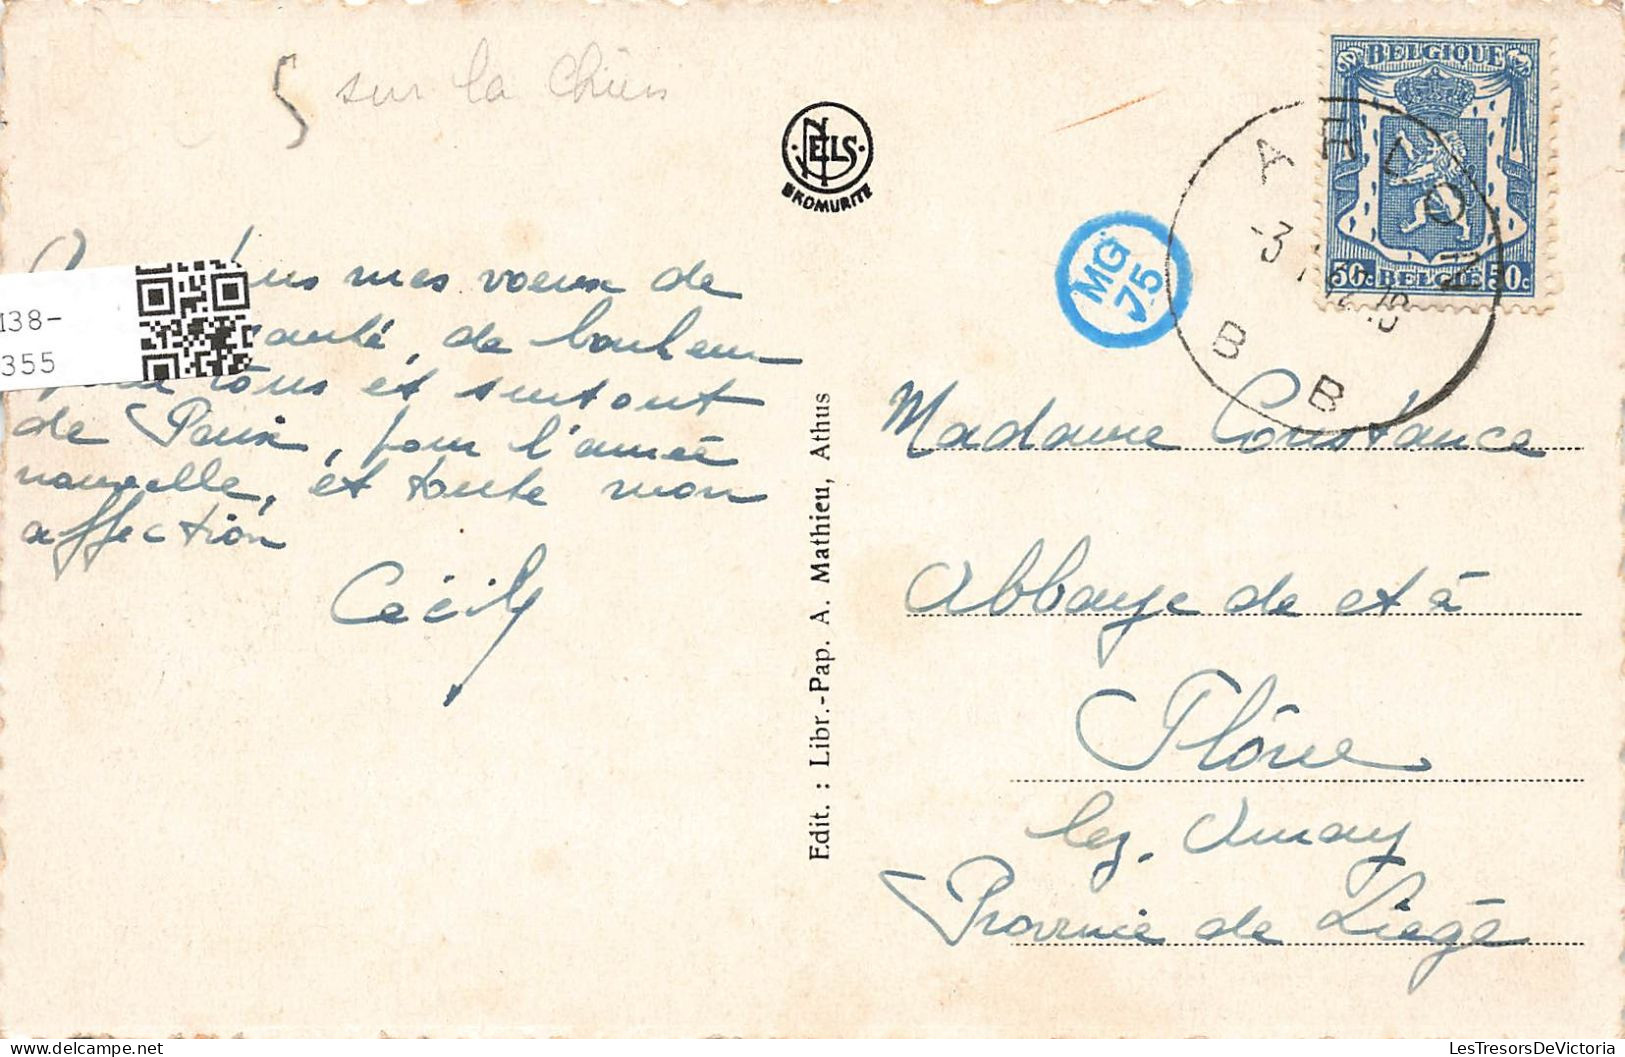 sur la
NELS
BROMURITE
BELGIQUE
50c BELGIË 50c
ARLON
-3
B B
MG
J5
138-
355
mes voeux de
santé, de bonheur
tous et surtout
de Paix, pour l'année
nouvelle, et toute mon
affection
Cécily
Edit. : Libr.-Pap. A. Mathieu, Athus
Madame Constance
Abbaye de et à
Flône
lez. Amay
Province de Liège
LesTresorsDeVictoria